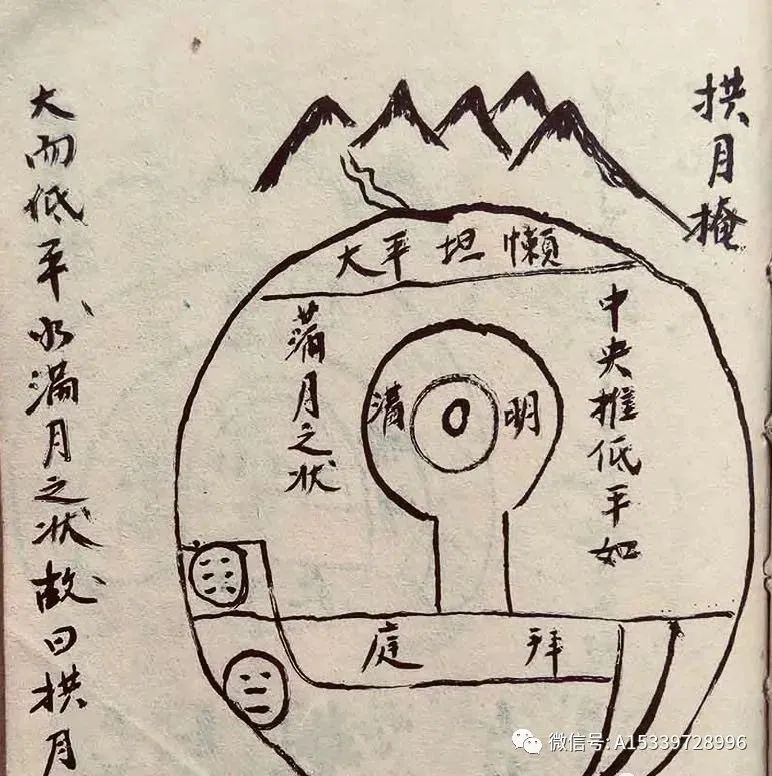 拱月掩
大平坦懶
中央推低平如
满月之状
满 明
庭 拜
大而低平氺滿月之状故曰拱月
微信号:A15339728996